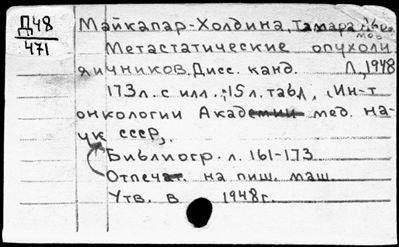 Д48
471
Майкапар-Холдина, Тамара Львовна
Метастатические опухоли
яичников. Дисс. канд. Л., 1948
173 л. с илл.; 15 л. табл. Ин-т
онкологии Академии мед. на-
ук СССР.
Библиогр. л. 161-173
Отпечат. на пиш. маш.
Утв. в 1948 г.